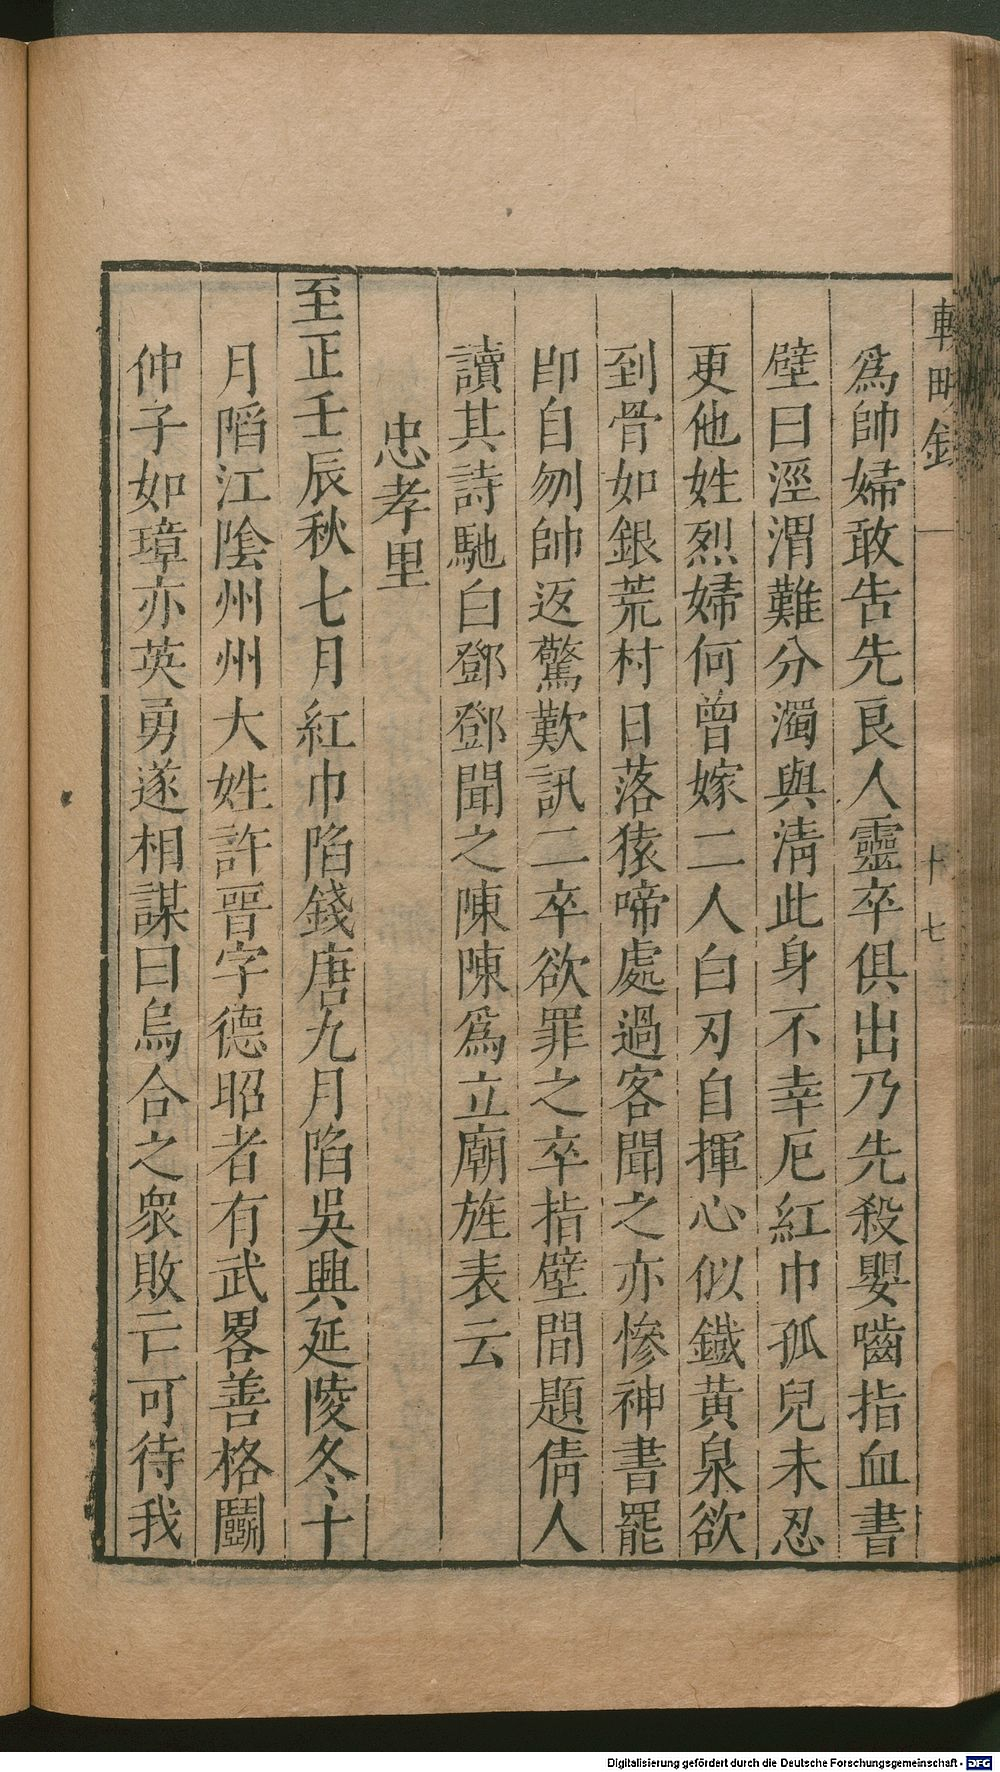 輟畊錄 十七
爲帥婦敢告先良人靈卒俱出乃先殺嬰嚙指血書
壁曰涇渭難分濁與淸此身不幸厄紅巾孤兒未忍
更他姓烈婦何曾嫁二人白刃自揮心似鐵黃泉欲
到骨如銀荒村日落猿啼處過客聞之亦慘神書罷
卽自刎帥返驚歎訊二卒欲罪之卒指壁間題倩人
讀其詩馳白鄧鄧聞之陳陳爲立廟旌表云
忠孝里
至正壬辰秋七月紅巾陷錢唐九月陷吳興延陵冬十
月陷江陰州州大姓許晋字德昭者有武畧善格鬭
仲子如璋亦英勇遂相謀曰烏合之衆敗亡可待我
Digitalisierung gefördert durch die Deutsche Forschungsgemeinschaft - DFG